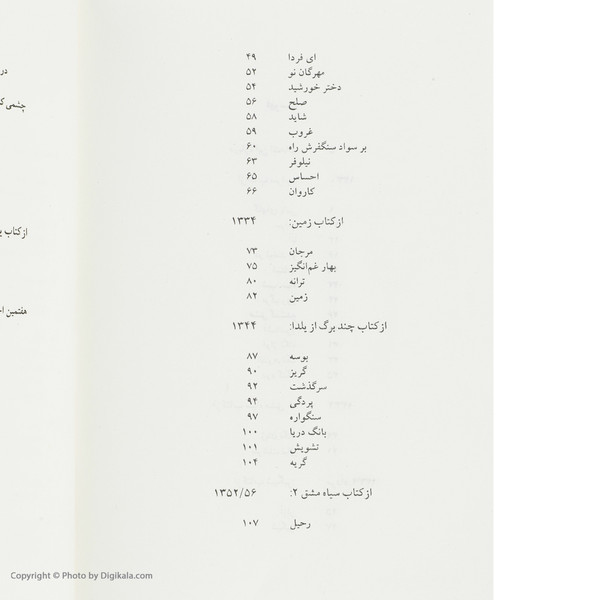 ای فردا ۴۹
مهرگان نو ۵۲
دختر خورشید ۵۴
صلح ۵۶
شاید ۵۸
غروب ۵۹
بر سواد سنگفرش راه ۶۰
نیلوفر ۶۳
احساس ۶۵
کاروان ۶۶
از کتاب زمین: ۱۳۳۴
مرجان ۷۳
بهار غم‌انگیز ۷۵
ترانه ۸۰
زمین ۸۲
از کتاب چند برگ از یلدا: ۱۳۴۴
بوسه ۸۷
گریز ۹۰
سرگذشت ۹۲
پردگی ۹۴
سنگواره ۹۷
بانگ دریا ۱۰۰
تشویش ۱۰۱
گریه ۱۰۴
از کتاب سیاه مشق ۲: ۱۳۵۲/۵۶
رحیل ۱۰۷
در
چشمی
از کتاب
هفتمین
Copyright © Photo by Digikala.com